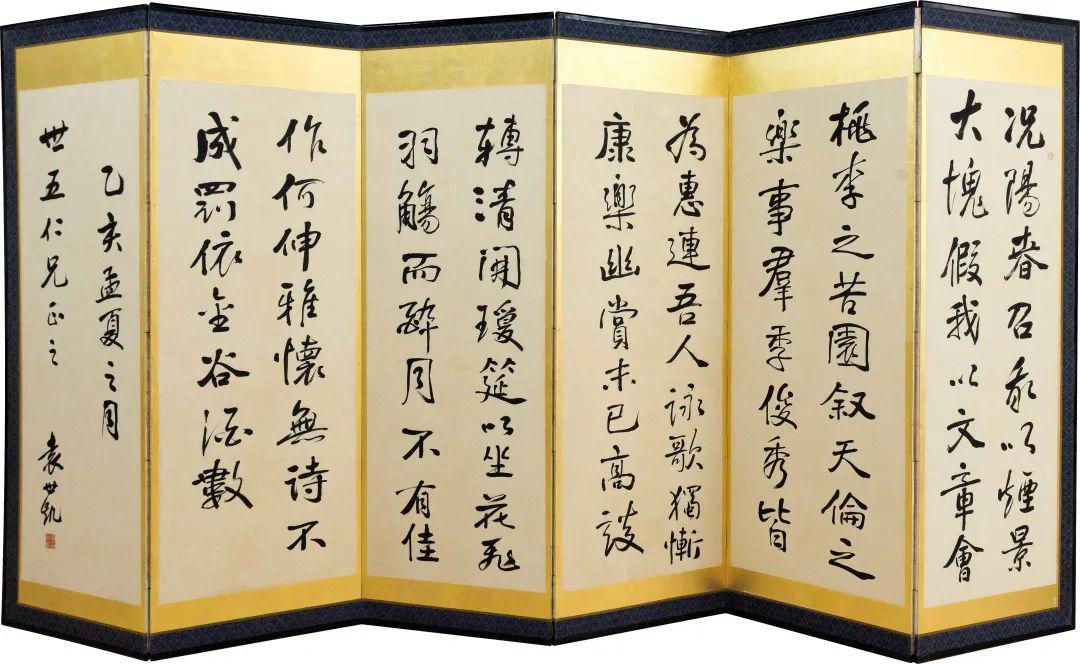 况陽春召我以煙景
大愧假我以文章會
桃李之苦園叙天倫之
樂事羣季俊秀皆
為惠連吾人詠歌獨慚
康樂幽賞未已高談
轉清開瓊筵以坐花飛
羽觴而醉月不有佳
作何伸雅懷無詩不
成罰依金谷酒數
乙亥孟夏之月
世五仁兄正之
袁世凱